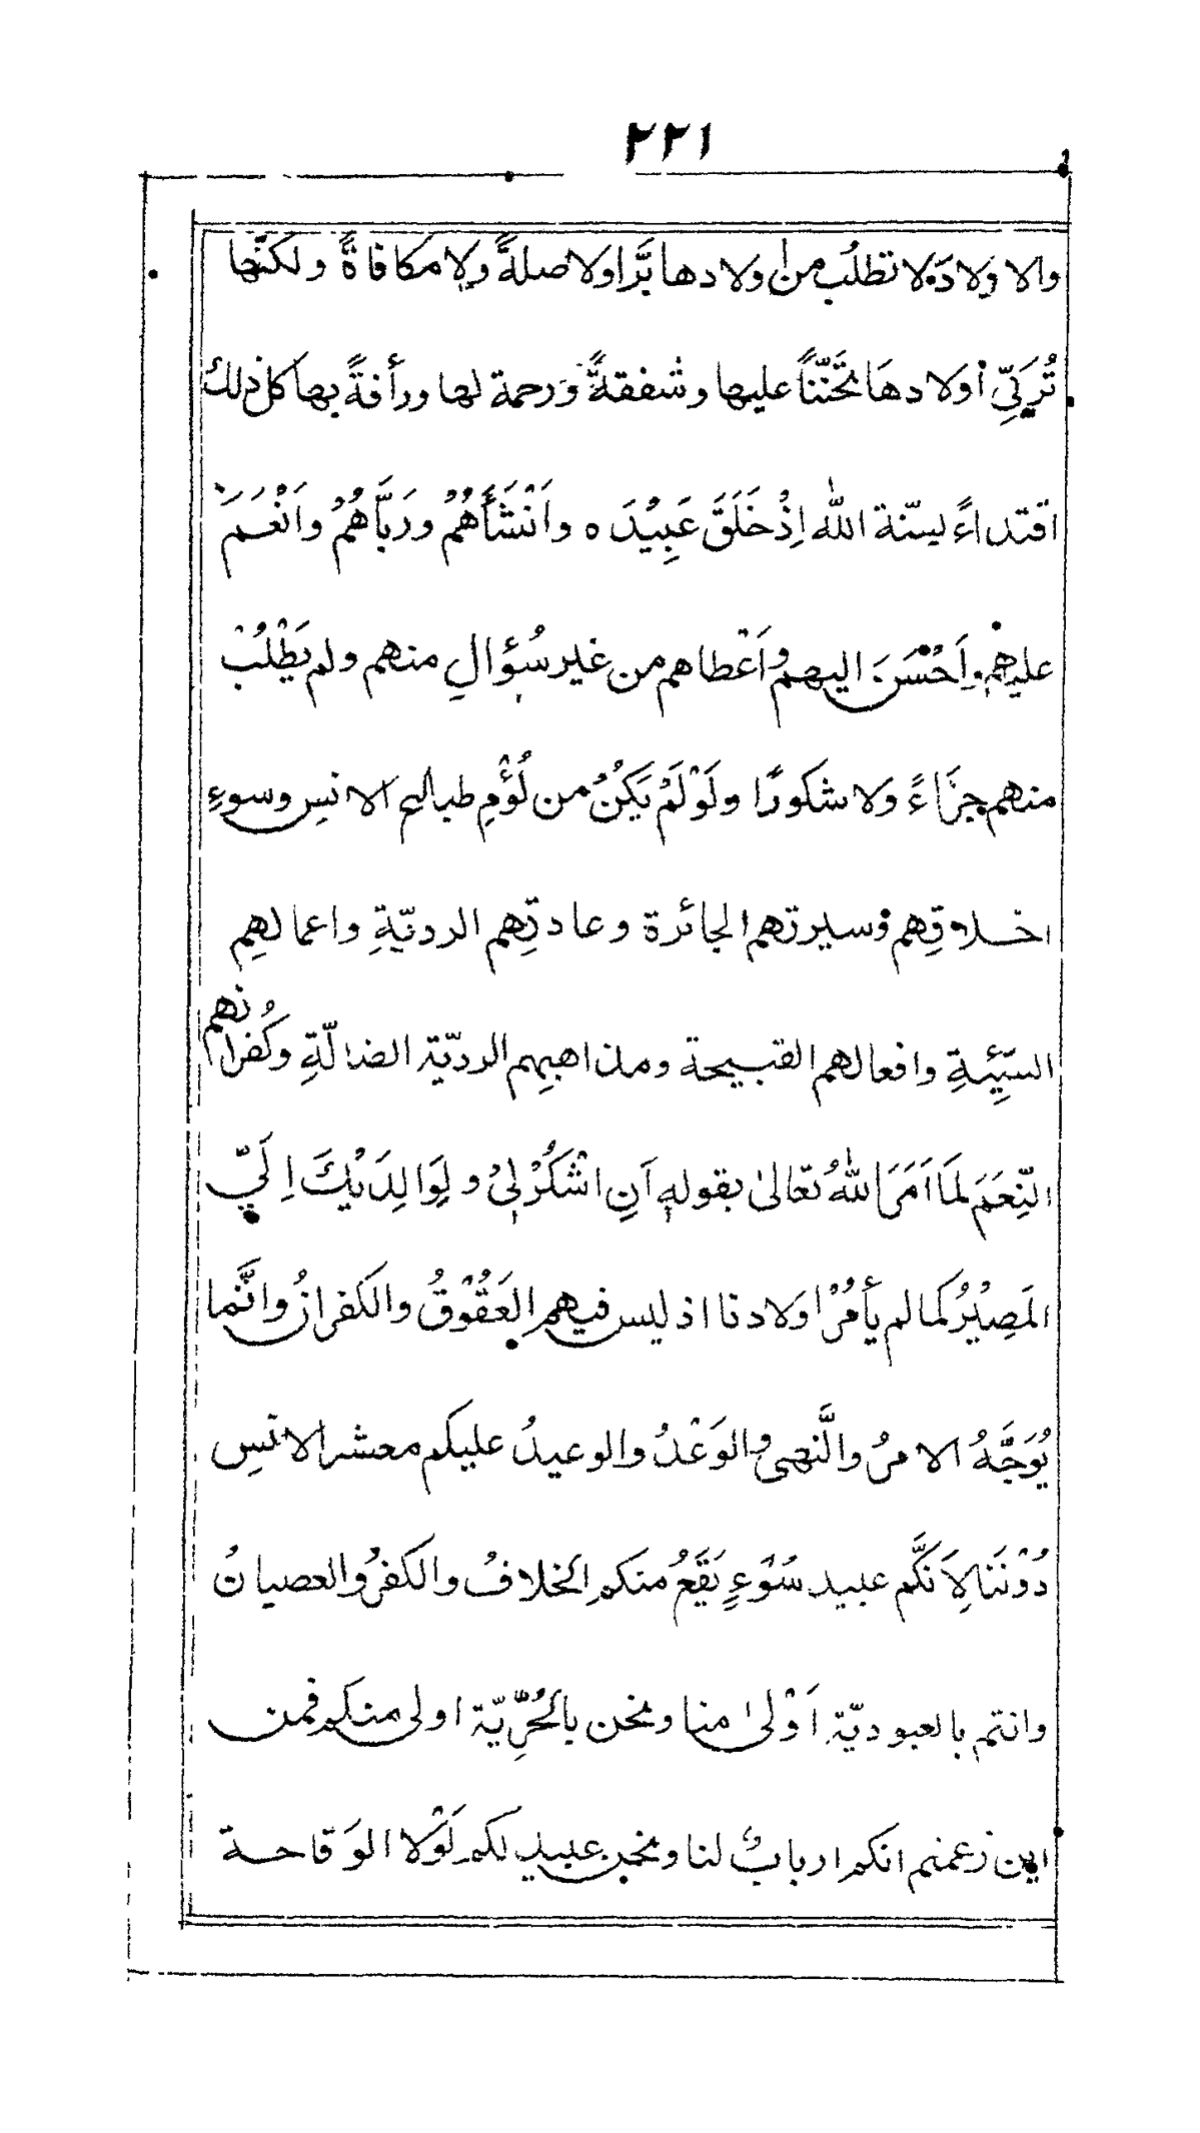 ٢٢١
والاولاد لا تطلب من اولادها بَرًّا ولا صلةً ولا مكافاةً ولكنّها
تُرَبِّي أولادهَا تَحَنُّنًا عليها وشفقةً وَرحمة لها ورأفةً بها كل ذلك
اقتداءً لسنّة الله اِذْ خَلَقَ عَبِيْدَه واَنْشَأَهُمْ ورَبَّاهُمْ واَنْعَمَ
عليهم واَحْسَنَ اليهم واَعْطاهم من غير سُؤالٍ منهم ولم يَطْلُبْ
منهم جزَاءً وَلا شكورًا ولَوْ لَمْ يَكُنْ من لُؤْمِ طبائع الانسِ وسوءِ
اخلاقِهم وسيرتهم الجائرة وعادتِهم الرديّةِ واعمالهِم
السَّيِّئةِ وافعالهم القبيحة ومذاهبِهم الرديّة الضالّةِ وكُفرانهم
النِّعَمَ لمَا اَمَرَ اللّٰهُ تَعَالىٰ بقوله اَنِ اشْكُرْ لِىْ ولِوَالِدَيْكَ اِلَيَّ
المَصِيْرُ كما لم يأمُرْ اَولادنا اذ ليس فيهم العُقُوْقُ والكفرانُ وانَّما
يُوَجَّهُ الامرُ والنَّهىُ والوَعْدُ والوعيدُ عليكم معشر الانسِ
دُوْنَنَا لِاَنَّكُم عبيد سُوْءٍ يَقَعُ منكم الخلافُ والكفرُ والعصيانُ
وانتم بالعبوديّة اَوْلىٰ منا ونحن بالحُرِّيّة اولى منكم فمن
اين زعمتم انكم اربابٌ لنا ونحن عبيد لكم لَوْلا الوَقاحة